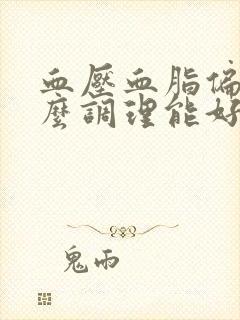 血壓血脂偏
麼調理能好
鬼雨